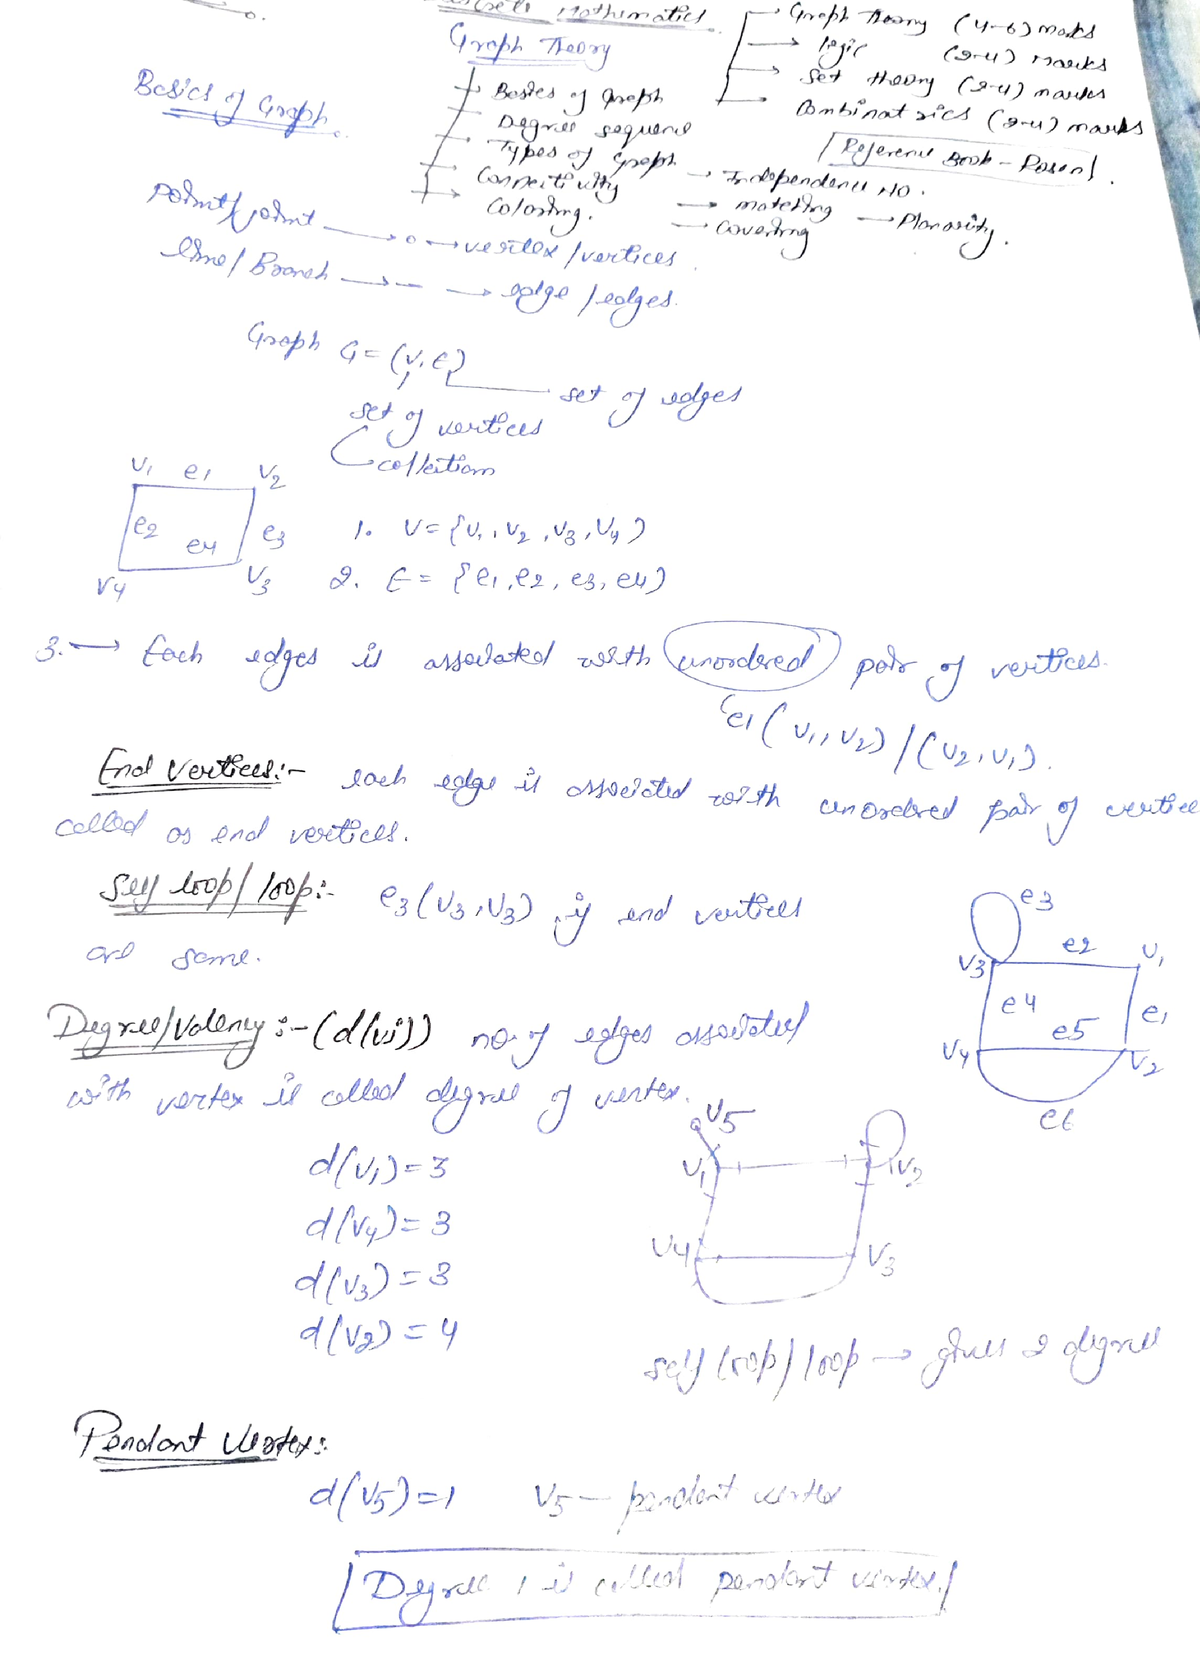 Discrete Mathematics
Graph Theory (4-6) marks
logic (2-4) marks
Set theory (2-4) marks
Combinatrics (2-4) marks
Reference Book - Rosen
Graph Theory
Basics of Graph
Degree sequence
Types of Graph
Connectivity
Coloring.
→ Independence No.
→ matching
→ Covering
→ Planarity.
Basics of Graph
Point/joint → o → vertex/vertices
line/Branch → — → edge/edges.
Graph G = (V, E)
set of edges
set of vertices
collection
V1 e1 V2
e2 e4 e3
V4 V3
1. V = {V1, V2, V3, V4}
2. E = {e1, e2, e3, e4)
3. → Each edges is associated with unordered pair of vertices.
e1 (V1, V2) / (V2, V1).
End vertices:- each edge is associated with unordered pair of vertice
called as end vertices.
Self loop/loop:- e3 (V3, V3) if end vertices
are same.
e3
V3 e2 V1
e4 e5 e1
V4 V2
e6
Degree/Valency :- (d(vi)) no. of edges associated
with vertex is called degree of vertex.
V5
V1 V2
V4 V3
d(V1) = 3
d(V4) = 3
d(V3) = 3
d(V2) = 4
self loop/loop → gives 2 degree
Pendant Vertex:
d(V5) = 1 V5 — pendant vertex
Degree 1 is called pendant vertex.